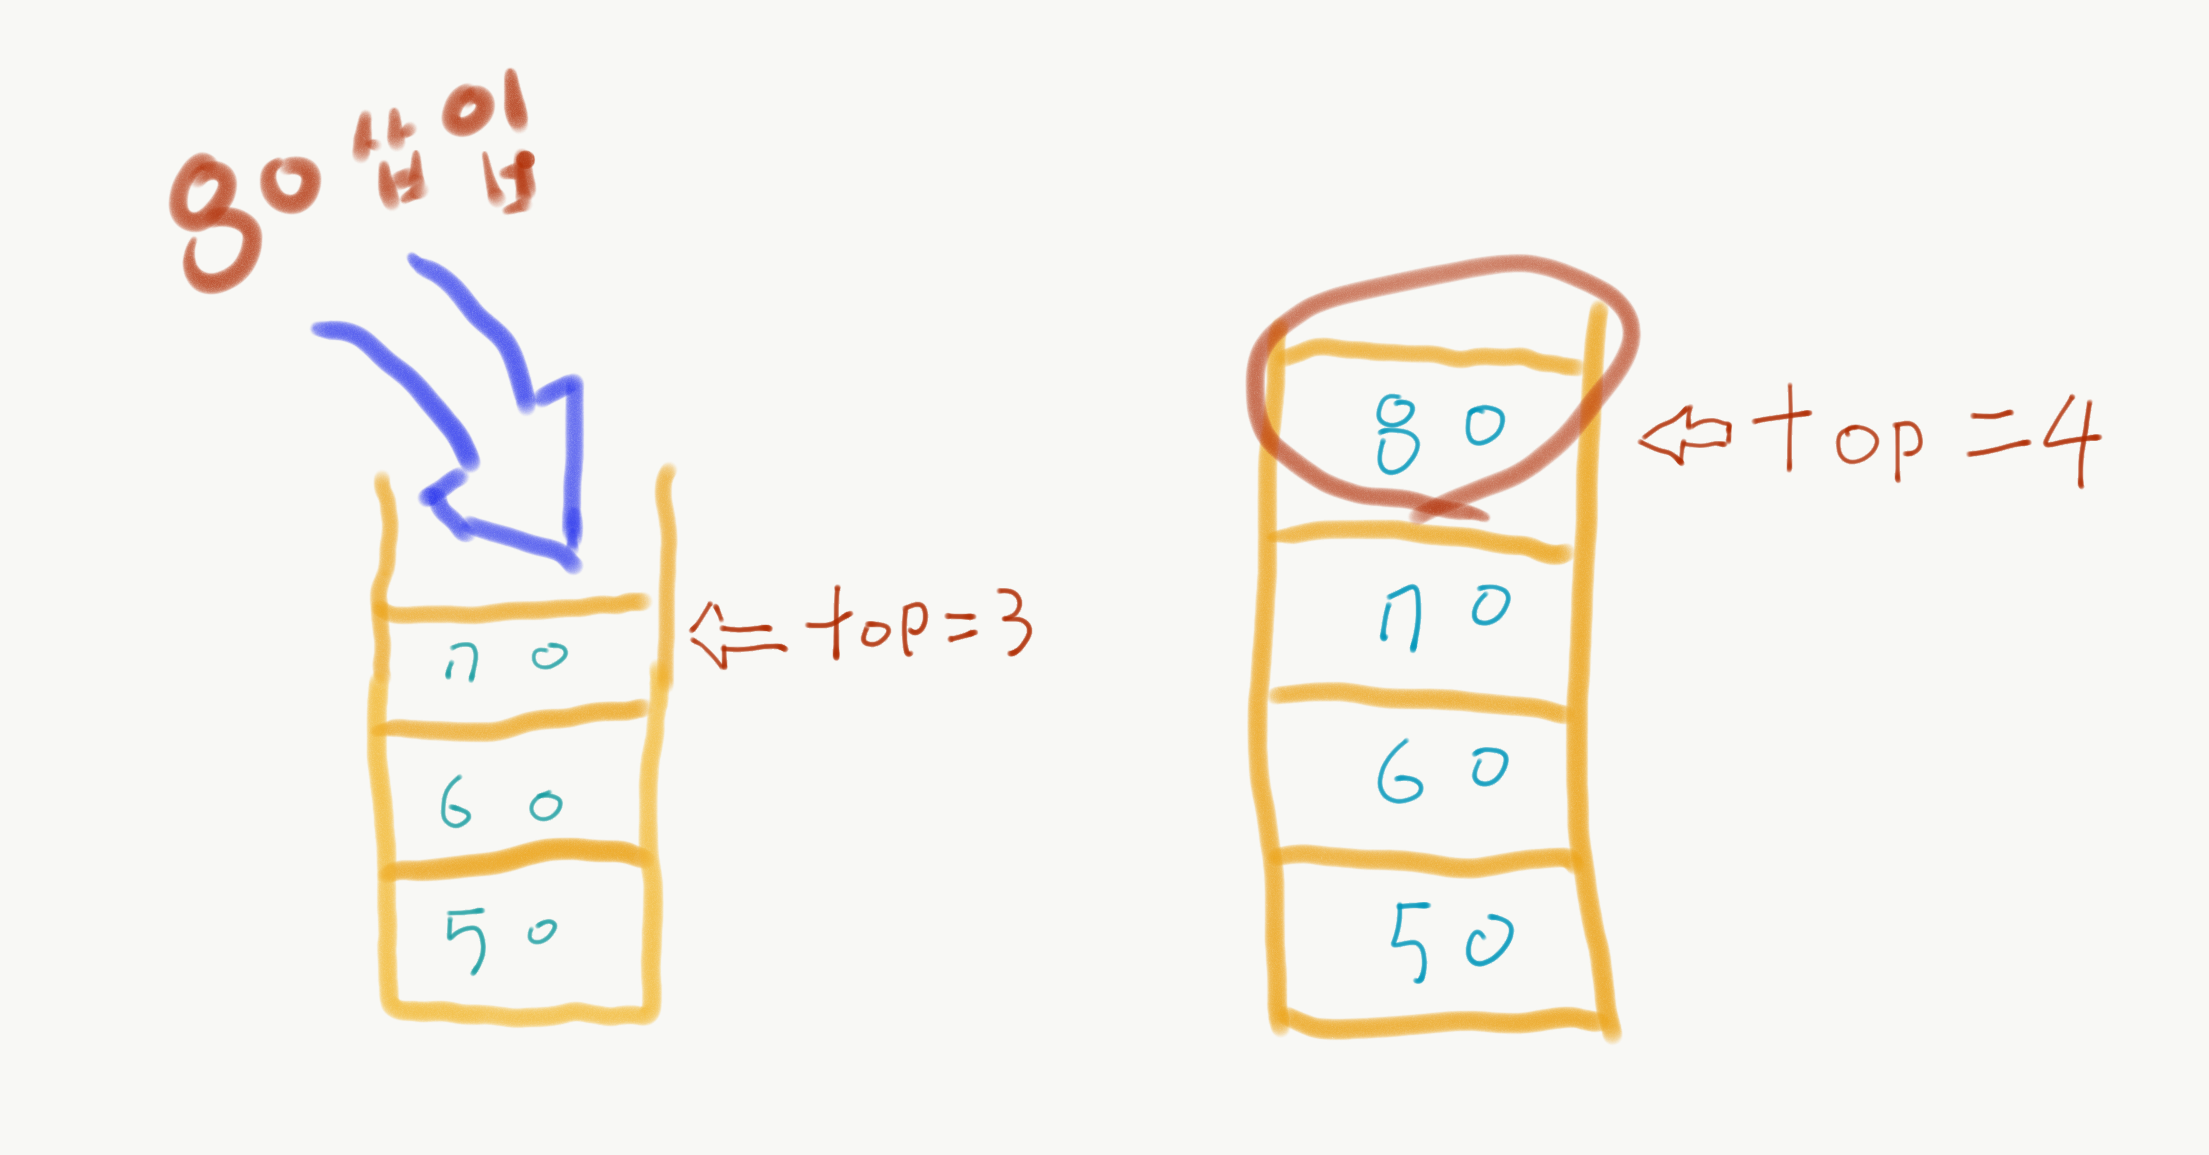 80 삽입
70
60
50
top=3
80
70
60
50
top=4